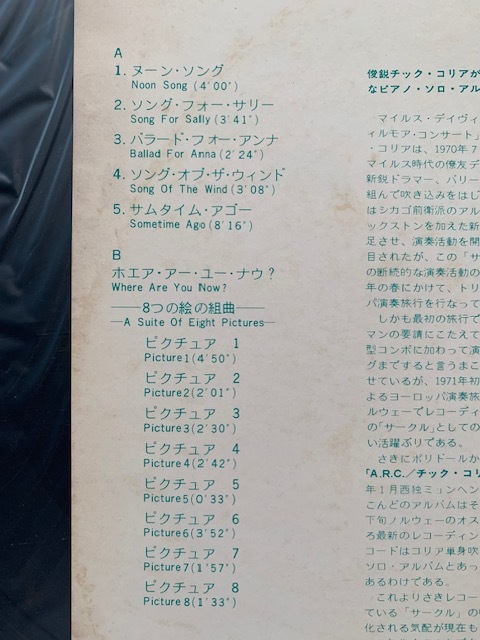 A
1. ヌーン・ソング
Noon Song (4'00")
2. ソング・フォー・サリー
Song For Sally (3'41")
3. バラード・フォー・アンナ
Ballad For Anna (2'24")
4. ソング・オブ・ザ・ウィンド
Song Of The Wind (3'08")
5. サムタイム・アゴー
Sometime Ago (8'16")
B
ホエア・アー・ユー・ナウ?
Where Are You Now?
——8つの絵の組曲——
—A Suite Of Eight Pictures—
ピクチュア 1
Picture 1 (4'50")
ピクチュア 2
Picture 2 (2'01")
ピクチュア 3
Picture 3 (2'30")
ピクチュア 4
Picture 4 (2'42")
ピクチュア 5
Picture 5 (0'33")
ピクチュア 6
Picture 6 (3'52")
ピクチュア 7
Picture 7 (1'57")
ピクチュア 8
Picture 8 (1'33")
俊鋭チック・コリアが
なピアノ・ソロ・アル
マイルス・デイヴィ
ィルモア・コンサート」
・コリアは、1970年7
マイルス時代の僚友デ
新鋭ドラマー、バリー
組んで吹き込みをはじ
はシカゴ前衛派のアル
ックストンを加えた新
足させ、演奏活動を開
目されたが、この「サ
の断続的な演奏活動の
年の春にかけて、トリ
パ演奏旅行を行なって
しかも最初の旅行で
マンの要請にこたえて
型コンボに加わって演
グまですると言うまこ
せているが、1971年初
よるヨーロッパ演奏旅
ルウェーでレコーディ
の「サークル」としての
い活躍ぶりである。
さきにポリドールか
「A.R.C./チック・コリ
年1月西独ミュンヘン
こんどのアルバムはそ
下旬ノルウェーのオス
ろ最新のレコーディン
コードはコリア単身吹
ソロ・アルバムとあっ
あるわけである。
これよりさきレコー
ている「サークル」の
化される気配が現在も